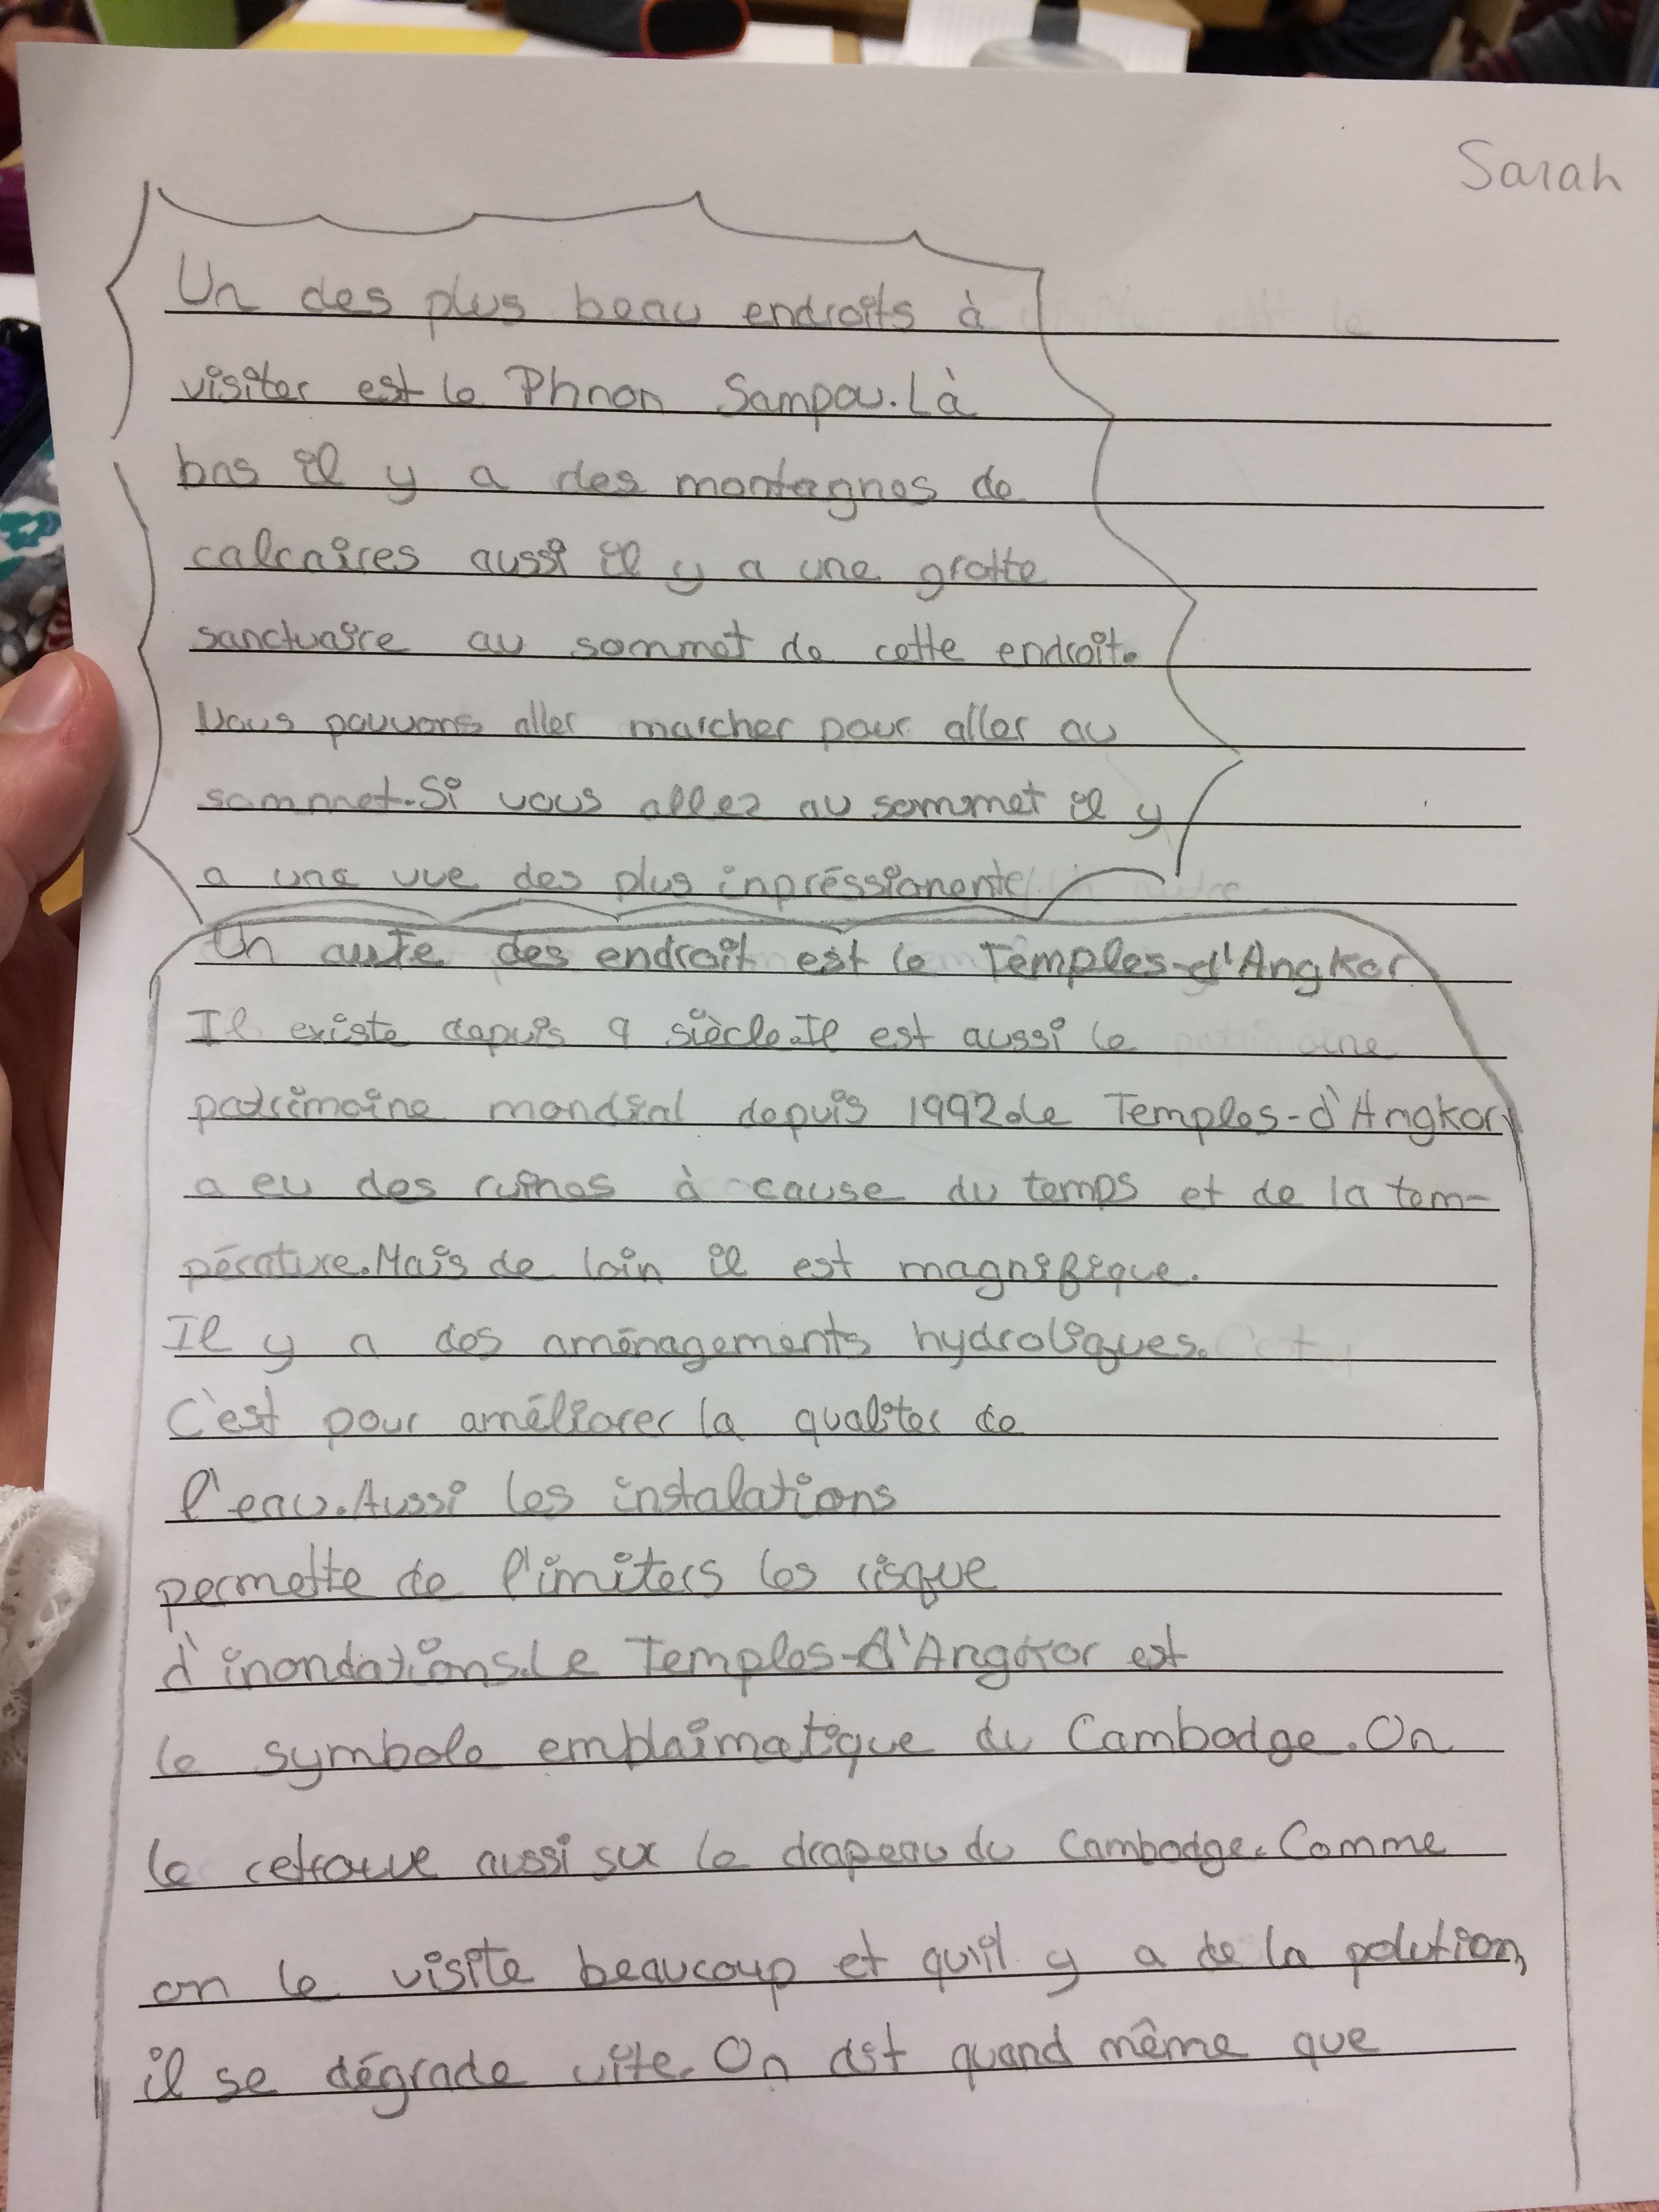 Sarah
Un des plus beau endroits à
visiter est le Phnon Sampou. Là
bas il y a des montagnes de
calcaires aussi il y a une grotte
sanctuaire au sommet de cette endroit.
Vous pouvons aller marcher pour aller au
sommet. Si vous allez au sommet il y
a une vue des plus inpréssionente
Un aute des endroit est le Temples-d'Angkor
Il existe depuis 9 siècle. Il est aussi le
patrimoine mondial depuis 1992. le Temples-d'Angkor
a eu des ruines à cause du temps et de la tem-
pérature. Mais de loin il est magnifique.
Il y a des aménagements hydroliques.
C'est pour améliorer la qualiter de
l'eau. Aussi les instalations
permette de l'imiters les risque
d'inondations. Le Temples-d'Angkor est
le symbole emblaimatique du Cambodge. On
le retrouve aussi sur le drapeau du Cambodge. Comme
on le visite beaucoup et qu'il y a de la polution,
il se dégrade vite. On dit quand même que